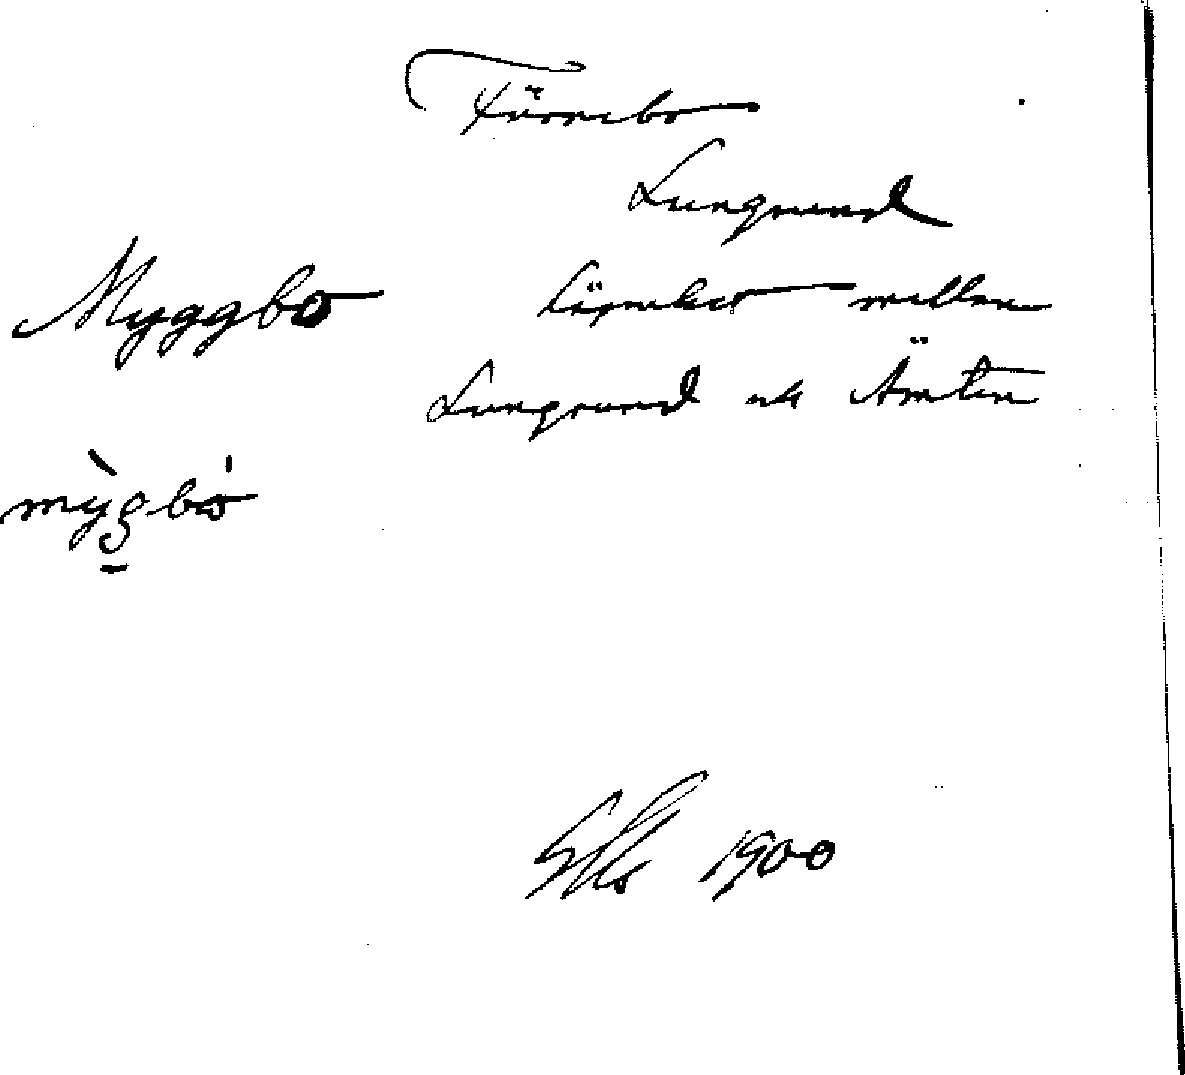 Färnebo
Lungsund
Myggbo lägenhet mellan
Lungsund och Ämten
mỳgbo
1900